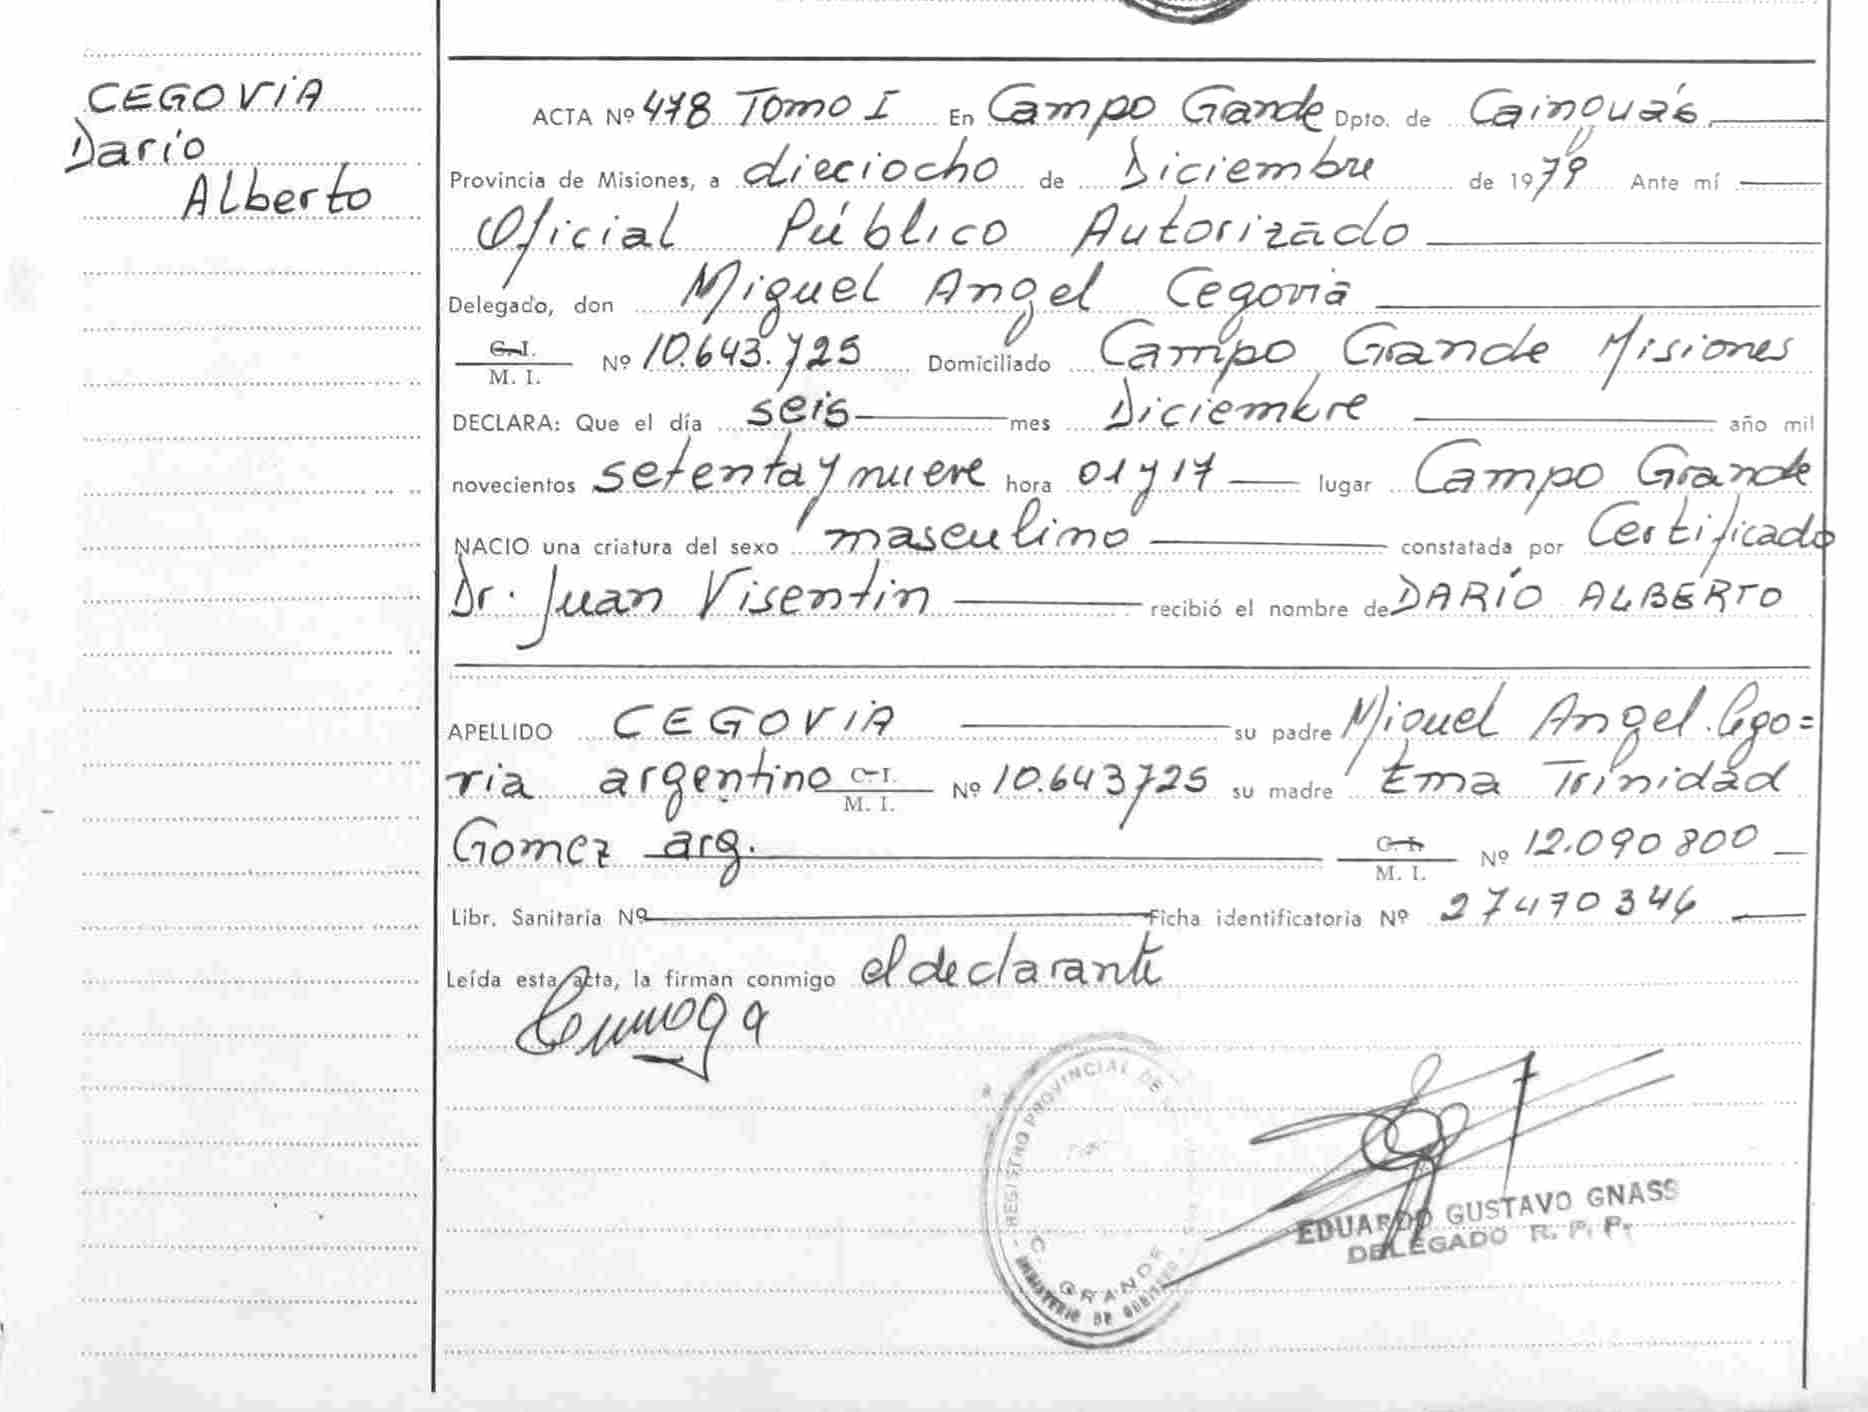 CEGOVIA
Darío
Alberto
ACTA Nº 478 Tomo I En Campo Grande Dpto. de Cainguás
Provincia de Misiones, a dieciocho de Diciembre de 1979 Ante mí
Oficial Público Autorizado
Delegado, don Miguel Angel Cegovia
C. I.
M. I.
Nº 10.643.725 Domiciliado Campo Grande Misiones
DECLARA: Que el día seis mes Diciembre año mil
novecientos setenta y nueve hora 01 y 17 lugar Campo Grande
NACIO una criatura del sexo masculino constatada por Certificado
Dr. Juan Visentin recibió el nombre de DARÍO ALBERTO
APELLIDO CEGOVIA su padre Miguel Angel Cego=
via argentino C. I. M. I. Nº 10.643725 su madre Ema Trinidad
Gomez arg. C. I. M. I. Nº 12.090 800
Libr. Sanitaria Nº Ficha identificatoria Nº 27470346
Leída esta acta, la firman conmigo el declarante
REGISTRO PROVINCIAL DE
GRANDE
MINISTERIO DE GOBIERNO
EDUARDO GUSTAVO GNASS
DELEGADO R. P. P.